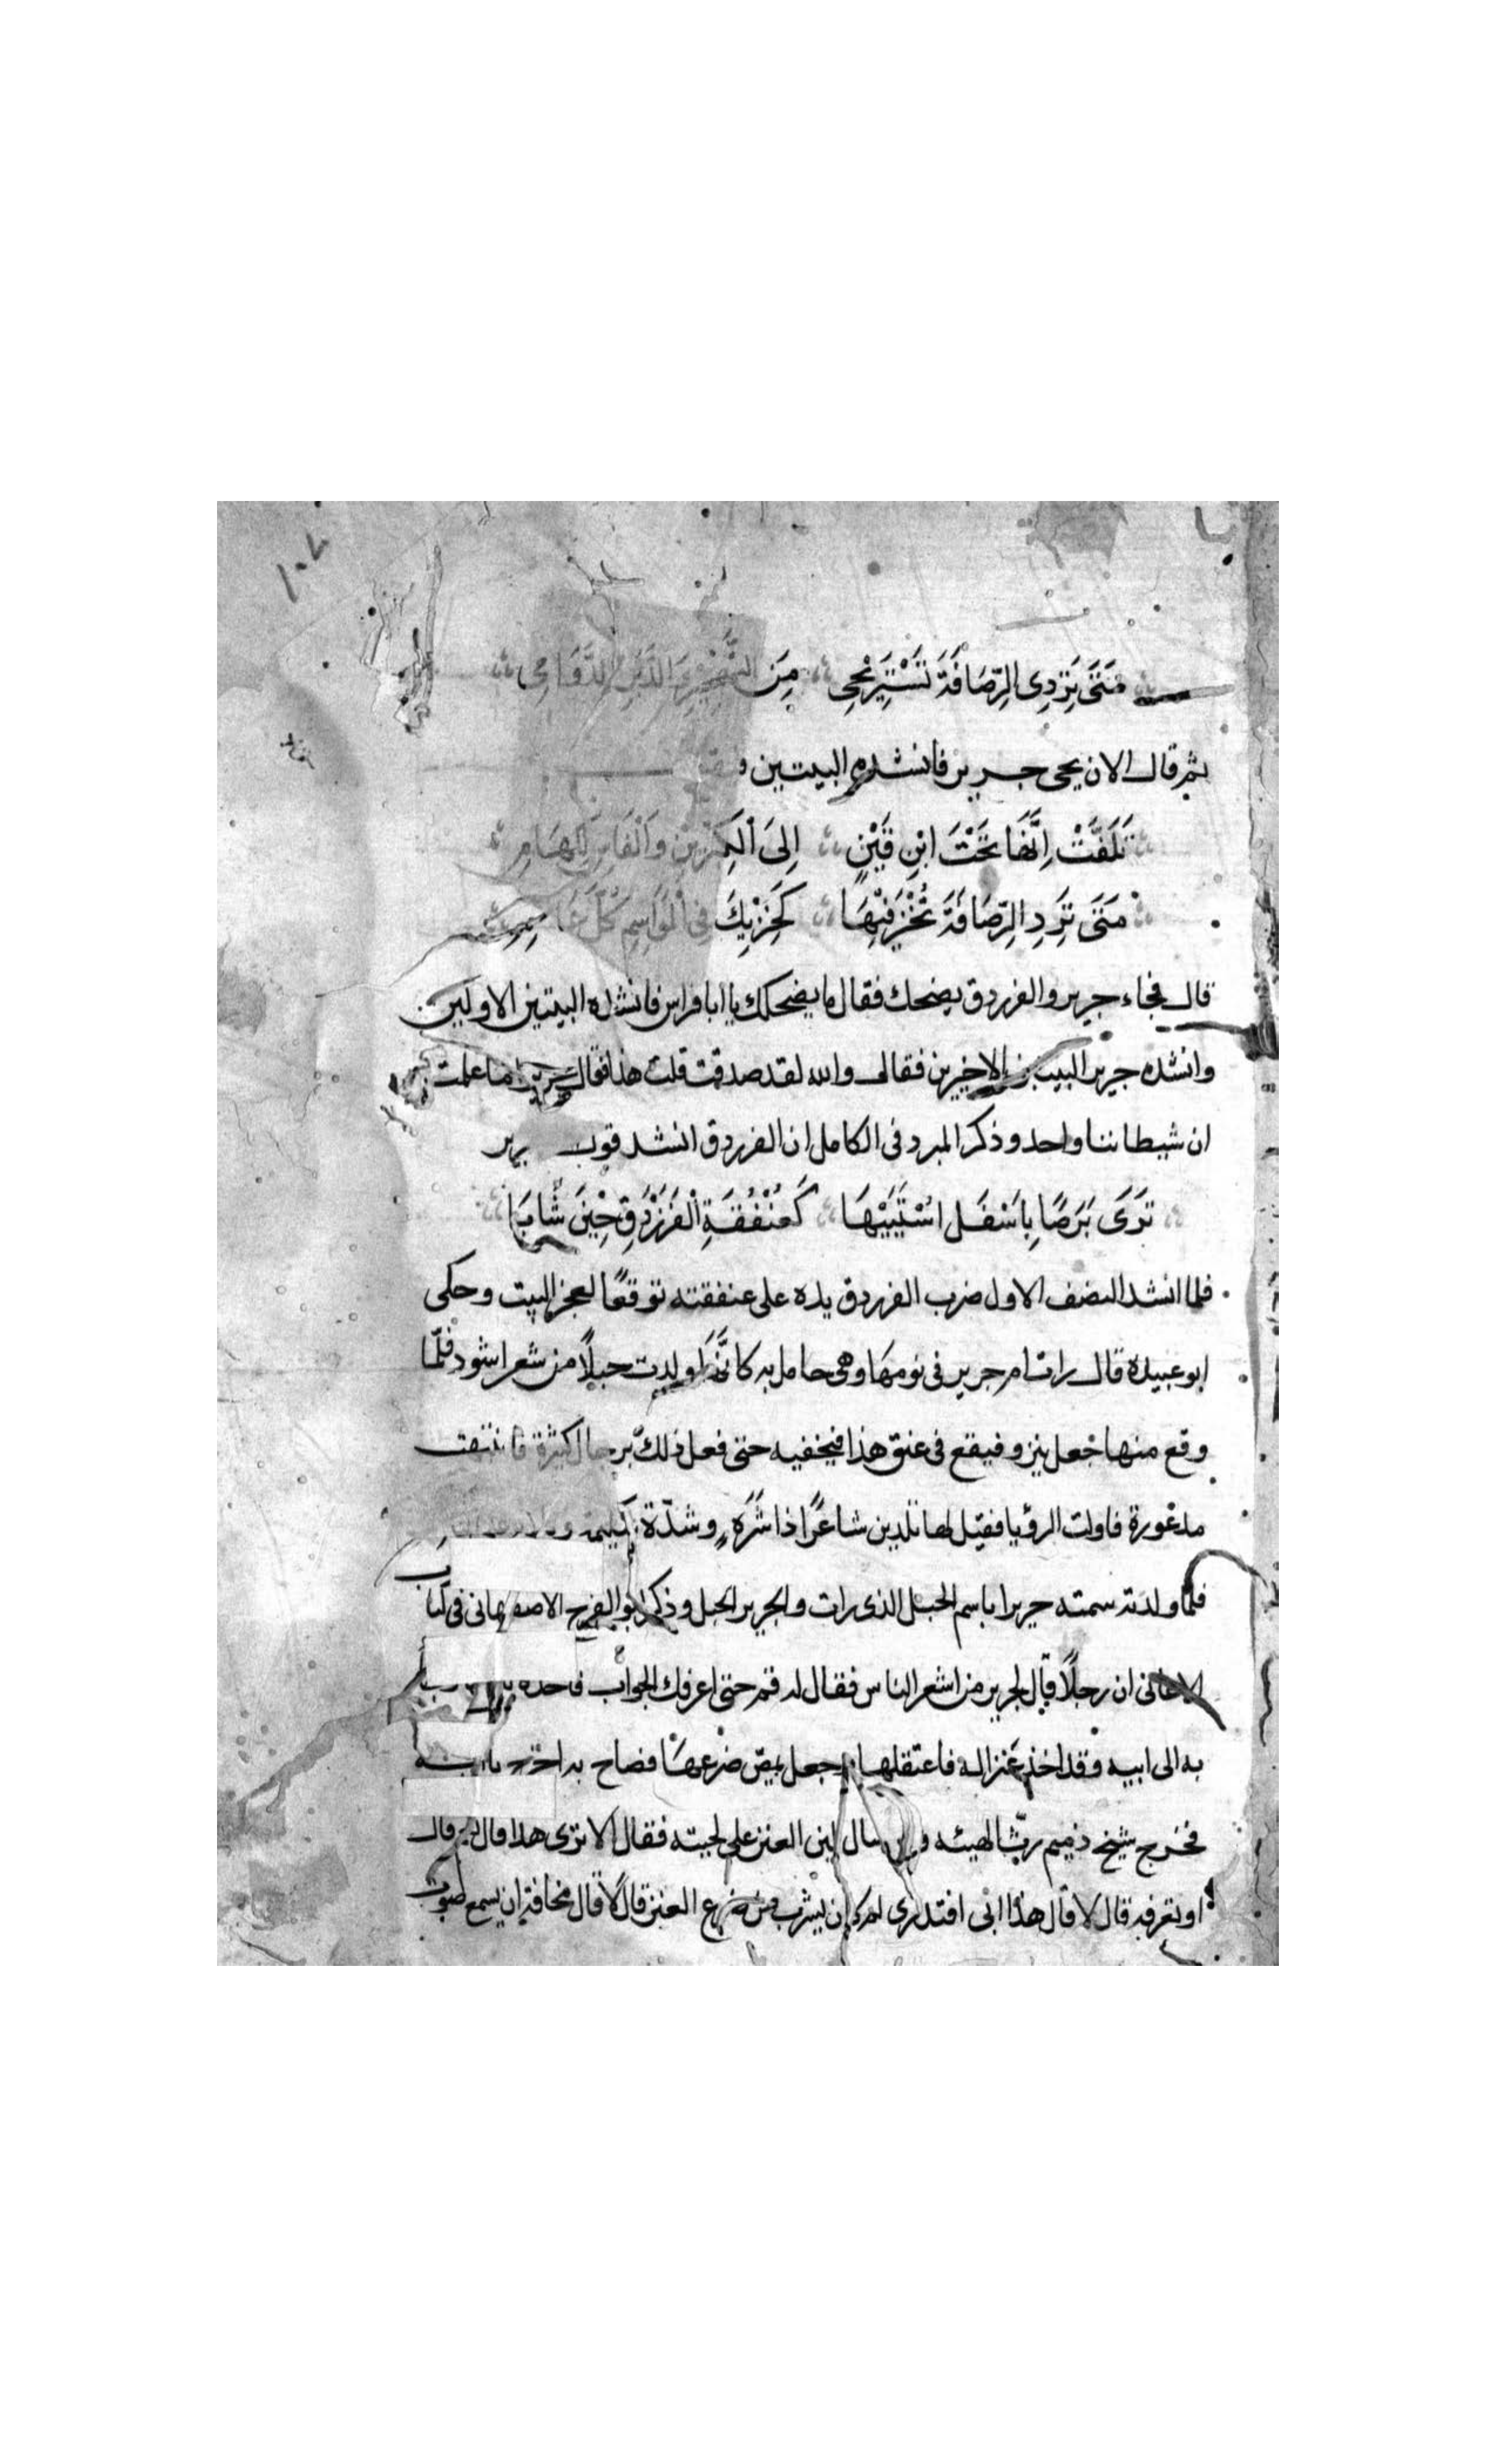 ١٠٧
مَتَى تَرِدِى الرِّصَافَةَ تَسْتَرِيحِى مِنَ التَّهْجِيرِ وَالدَّبَرِ الدَّوَامِى
ثم قال الان يجى جرير فانشده البيتين
تَلَفَّتْ اِنَّهَا تَحْتَ ابْنِ قَيْنٍ اِلَى الْكِيرَيْنِ وَالْفَاسِ الكَهَامِ
مَتَى تَرِدِ الرِّصَافَةَ تُخْزَ فِيْهَا كَخِزْيِكَ فى الْمَوَاسِمِ كُلَّ عَامِ
قال فجاء جرير والفرزدق يضحك فقال ما يضحكك يا ابا فراس فانشده البيتين الاولين
وانشده جرير البيتين الاخيرين فقال والله لقد صدقت قلت هذا فقال جرير ما علمت
ان شيطاننا واحد وذكر المبرد فى الكامل ان الفرزدق انشد قول جرير
تَرَى بَرَصًا بِاَسْفَلِ اسْكَتَيْهَا كَعُنْفُقَةِ الْفَرَزْدَقِ حِيْنَ شَابَا
فلما انشد النصف الاول ضرب الفرزدق يده على عنفقته توقعًا لعجز البيت وحكى
ابو عبيدة قال رات ام جرير فى نومها وهى حامل به كانها ولدت حبلًا من شعر اسود فلمّا
وقع منها جعل ينزو فيقع فى عنق هذا فيخنقه حتى فعل ذلك برجال كثيرة فانتبهت
مذعورة فاولت الرؤيا فقيل لها تلدين شاعرًا ذا شَرَهٍ وشدّة
فلمّا ولدته سمته جريرا باسم الحبل الذى رات والجرير الحبل وذكر ابو الفرج الاصفهانى فى كتاب
الاغانى ان رجلًا قال لجرير من اشعر الناس فقال له قم حتى اعرفك الجواب فاخذ
به الى ابيه وقد اخذ عنزا له فاعتقلها وجعل يمصّ ضرعها فصاح به اخرج يا ابه
فخرج شيخ ذميم رثّ الهيئه وقد سال لبن العنز على لحيته فقال الا ترى هذا قال نعم قال
او تعرفه قال لا قال هذا ابى افتدرى لم كان يشرب من ضرع العنز قال لا قال مخافة ان يسمع صوت